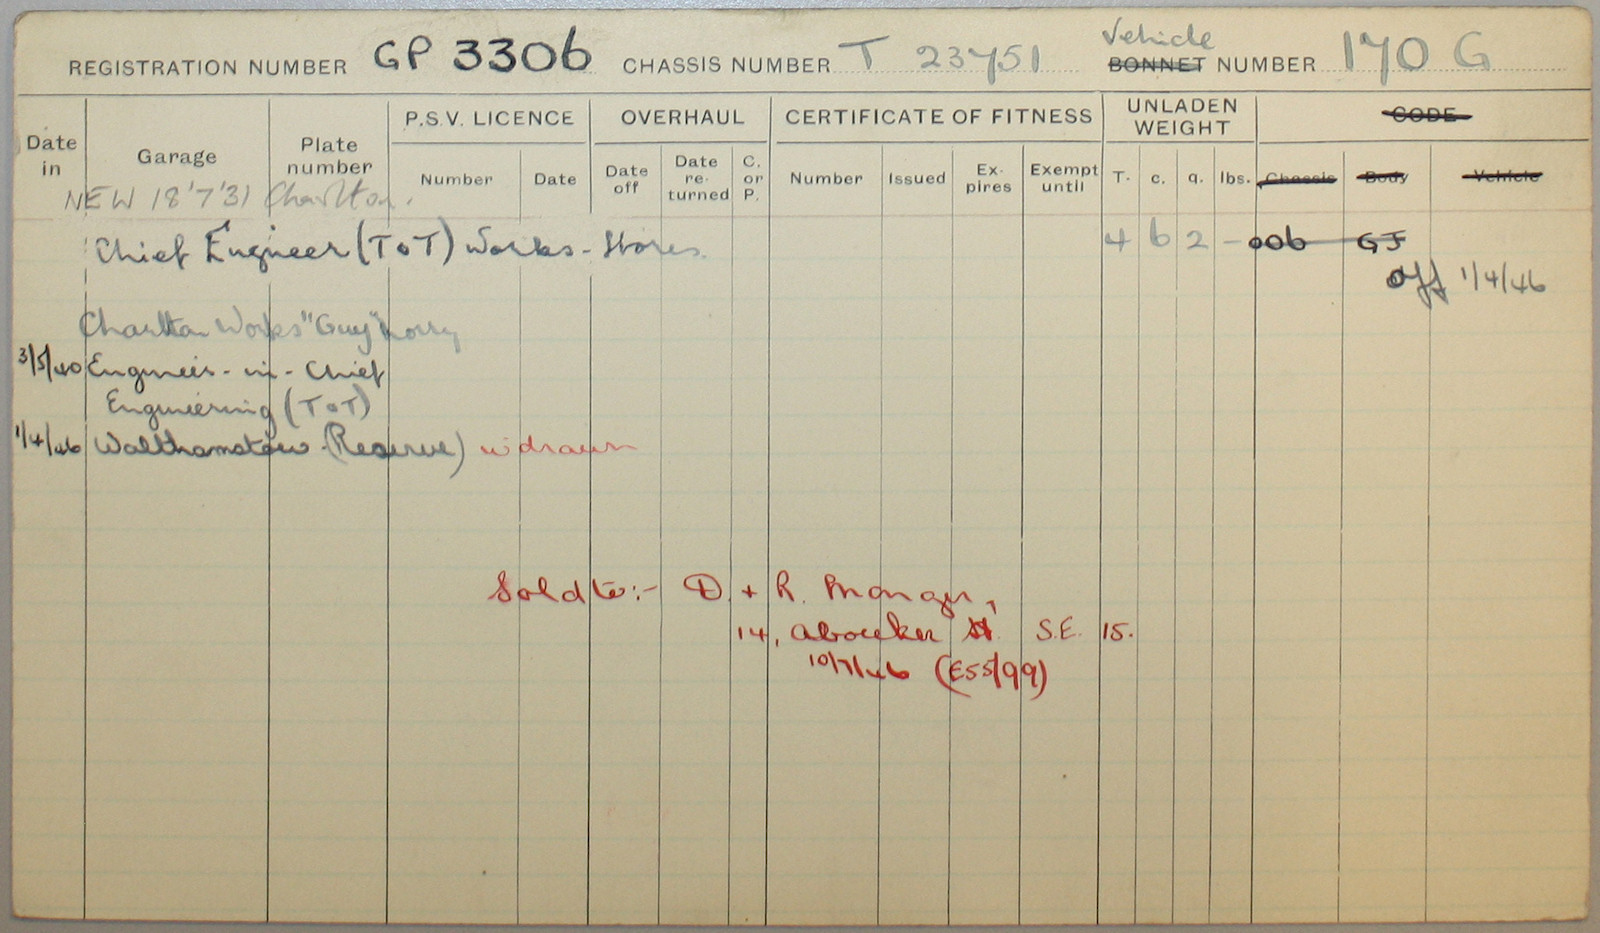 REGISTRATION NUMBER GP 3306 CHASSIS NUMBER T 23751 Vehicle BONNET NUMBER 170 G
Date in Garage Plate number P.S.V. LICENCE OVERHAUL CERTIFICATE OF FITNESS UNLADEN WEIGHT CODE
Number Date Date off Date re-turned C. or P. Number Issued Ex-pires Exempt until T. c. q. lbs. Chassis Body Vehicle
NEW 18'7'31 Charlton.
Chief Engineer (ToT) Works - Stores. 4 6 2 - 006 GJ
off 1/4/46
Charlton Works "Guy" Lorry
3/5/40 Engineer-in-Chief
Engineering (ToT)
1/4/46 Walthamstow (Reserve) w'drawn
Sold to:- D. + R.
14, St. S.E. 15.
10/7/46 (E55/99)